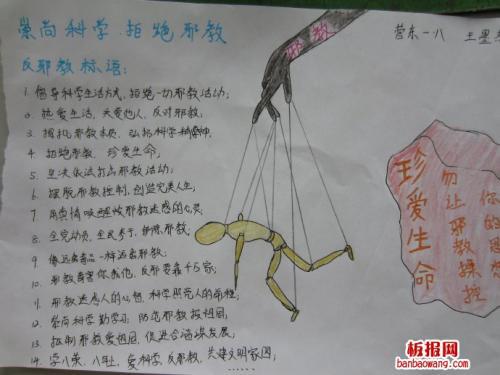 崇尚科学.拒绝邪教
营东一八 王墨
邪教
反邪教标语:
1. 倡导科学生活方式,拒绝一切邪教活动;
2. 热爱生活,关爱他人,反对邪教;
3. 揭批邪教本质,弘扬科学精神;
4. 拒绝邪教,珍爱生命;
5. 坚决依法打击邪教活动;
6. 摆脱邪教控制,创造完美人生;
7. 用真情唤醒被邪教迷惑的心灵;
8. 全党动员,全民参与,铲除邪教;
9. 像远离毒品一样远离邪教;
10. 邪教毒害你我他,反邪要靠千万家;
11. 邪教迷惑人的心智,科学照亮人的前程;
12. 崇尚科学勤学习,防范邪教报祖国;
13. 抵制邪教爱祖国,促进合谐谋发展;
14. 学八荣,八耻,爱科学,反邪教,共建文明家园;
......
珍爱生命
勿让邪教操控
你的思
板报网
banbaowang.com